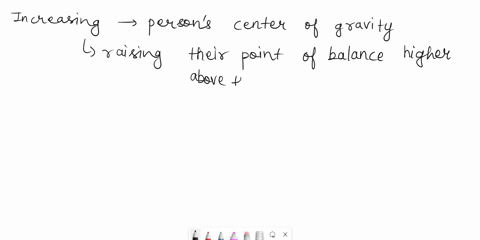 Increasing → person's center of gravity
↳ raising their point of balance higher
above t